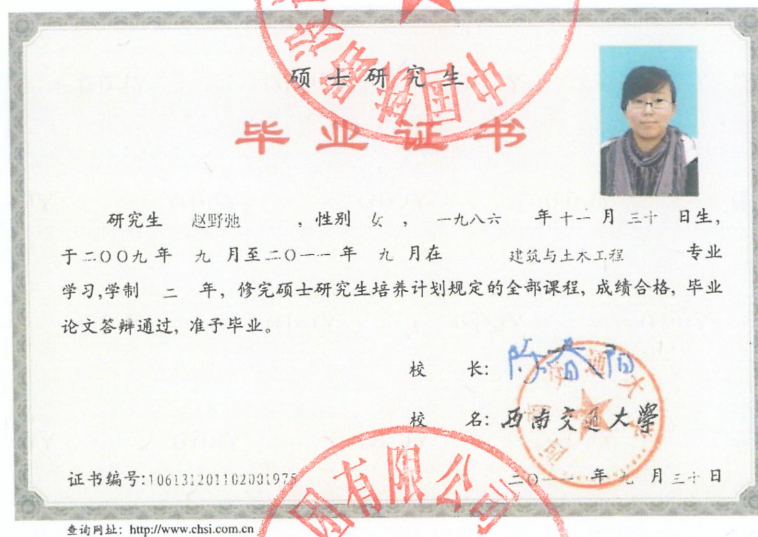 硕士研究生
毕业证书
研究生 赵野弛 ，性别 女 ， 一九八六 年十一月 三十 日生，
于二〇〇九年 九 月至二〇一一年 九 月在 建筑与土木工程 专业
学习,学制 二 年，修完硕士研究生培养计划规定的全部课程，成绩合格，毕业
论文答辩通过，准予毕业。
校 长: 陈春阳
校 名: 西南交通大学
证书编号:106131201102001975
二〇一一 年九 月三十日
查询网址：http://www.chsi.com.cn
中国铁路
团有限公司